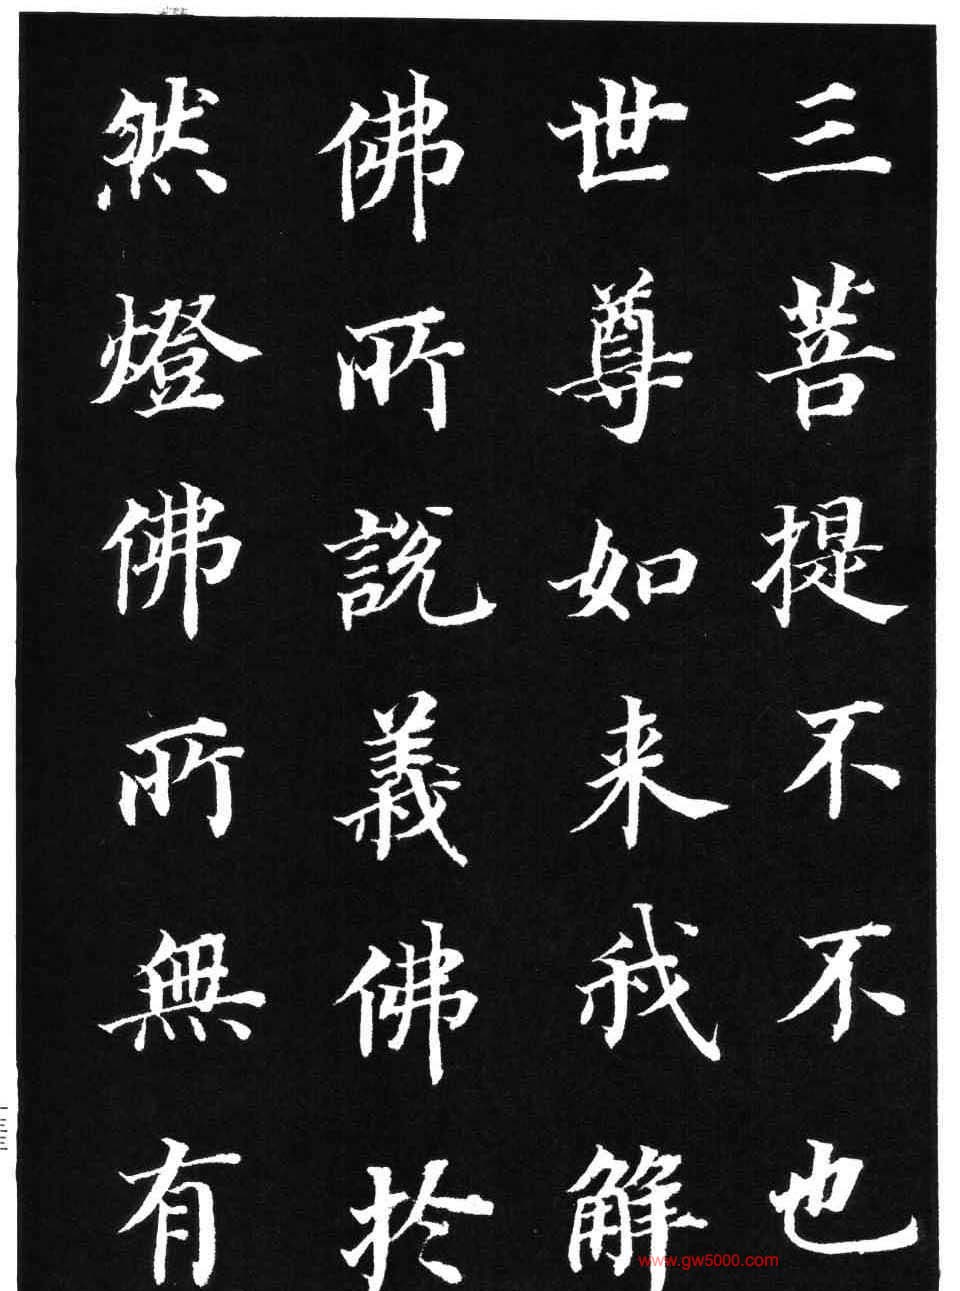 三菩提不不也
世尊如来我解
佛所說義佛於
然燈佛所無有
www.gw5000.com